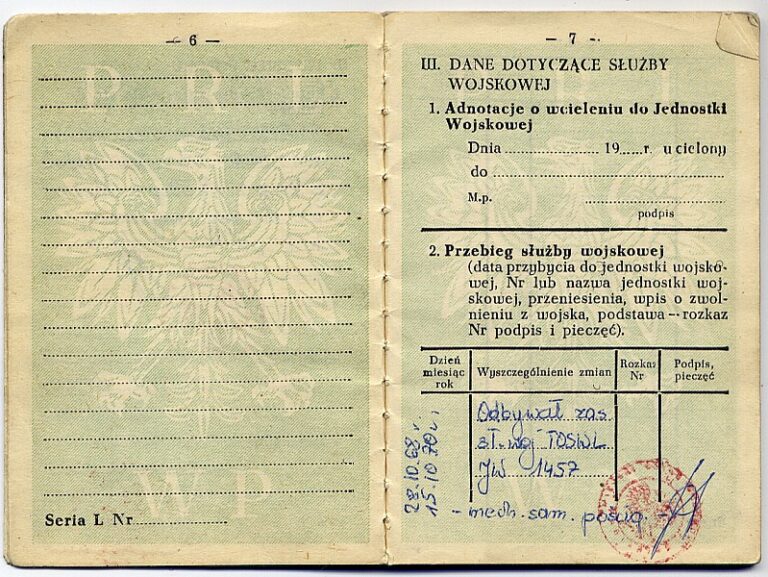 — 6 —
P R L
W P
Seria L Nr
— 7 —
III. DANE DOTYCZĄCE SŁUŻBY
WOJSKOWEJ
1. Adnotacje o wcieleniu do Jednostki
Wojskowej
Dnia 19 r. ucielony
do
M.p.
podpis
2. Przebieg służby wojskowej
(data przybycia do jednostki wojsko-
wej, Nr lub nazwa jednostki woj-
skowej, przeniesienia, wpis o zwol-
nieniu z wojska, podstawa — rozkaz
Nr podpis i pieczęć).
Dzień
miesiąc
rok
Wyszczególnienie zmian
Rozkaz
Nr
Podpis,
pieczęć
28.10.68 r.
15.10.70 r.
Odbywał zas
sł. woj TOSWL
JW 1457
- mech. sam. pościg. -